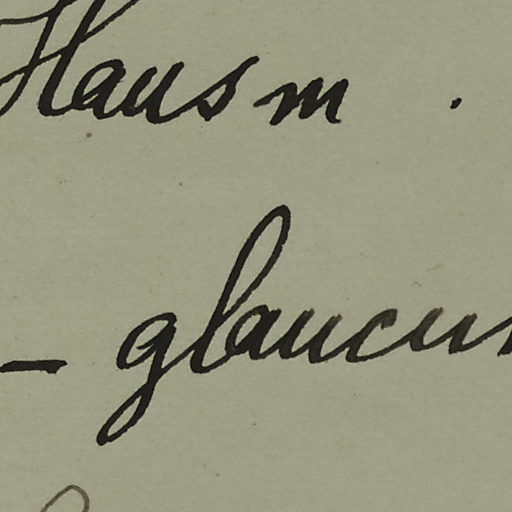 Hausm.
– glaucu